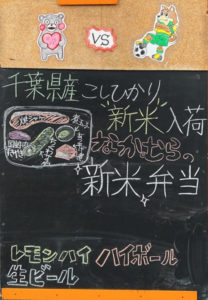 VS
千葉県産こしひかり
新米入荷
なかむらの
新米弁当
レモンハイ ハイボール
生ビール